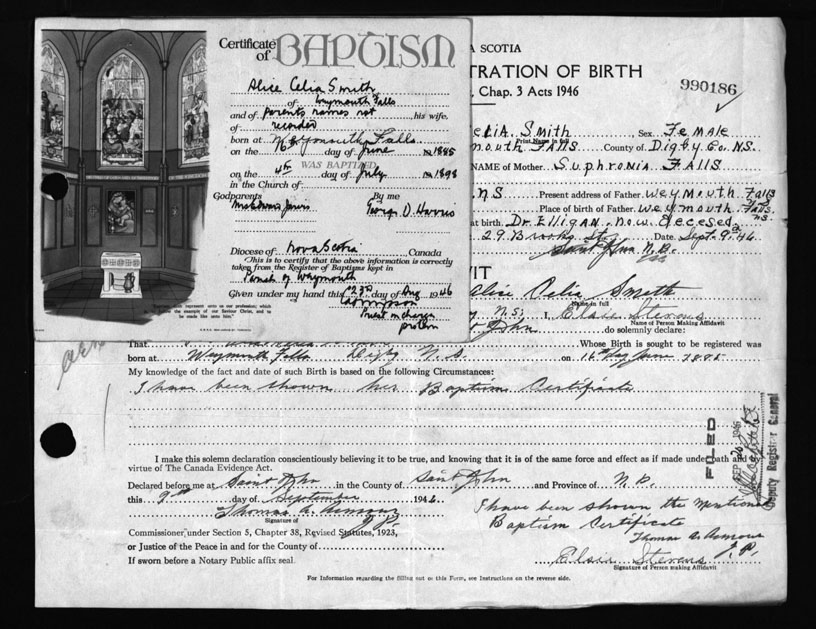 Certificate of BAPTISM
Alice Celia Smith
of Weymouth Falls
and of Parents names not his wife,
of recorded
born at Weymouth Falls
on the day of June 1885
WAS BAPTIZED
on the 4th day of July 1898
in the Church of
Godparents By me
George D. Harris
Diocese of Nova Scotia Canada
This is to certify that the above information is correctly
taken from the Register of Baptisms kept in
Parish of Weymouth
Given under my hand this 23rd day of Aug 1946
Priest in charge
pro tem
represents unto us our profession, which
the example of our Saviour Christ, and to
be made like unto him."
A SCOTIA
TRATION OF BIRTH
, Chap. 3 Acts 1946
990186
elia. Smith Sex Female
Print Name in full
mouth Falls County of Digby Co. NS.
NAME of Mother Suphronia Falls
NS Present address of Father Weymouth Falls
Place of birth of Father Weymouth Falls. NS
at birth. Dr Elligan, now Decesed
29 Brooks St Date Sept. 9. 46
Saint John N.B.
VIT
Alice Celia Smith
Name in full
N.S; I, Elsie Stevens
Name of Person Making Affidavit
St John do solemnly declare:
That Whose Birth is sought to be registered was
born at Weymouth Falls Digby N.S. on 16th day June 1885
My knowledge of the fact and date of such Birth is based on the following Circumstances:
I have been shown her Baptism Certificate
I make this solemn declaration conscientiously believing it to be true, and knowing that it is of the same force and effect as if made under oath and by
virtue of The Canada Evidence Act.
Declared before me at Saint John in the County of Saint John and Province of N.B.
this 9th day of September 1946
Thomas A. Armour J.P.
Signature of
Commissioner under Section 5, Chapter 38, Revised Statutes, 1923,
or Justice of the Peace in and for the County of
If sworn before a Notary Public affix seal.
I have been shown the mentioned
Baptism Certificate
Thomas A. Armour J.P.
Elsie Stevens
Signature of Person making Affidavit
For Information regarding the filling out of this Form, see Instructions on the reverse side.
FILED
SEP 1946
Deputy Registrar General